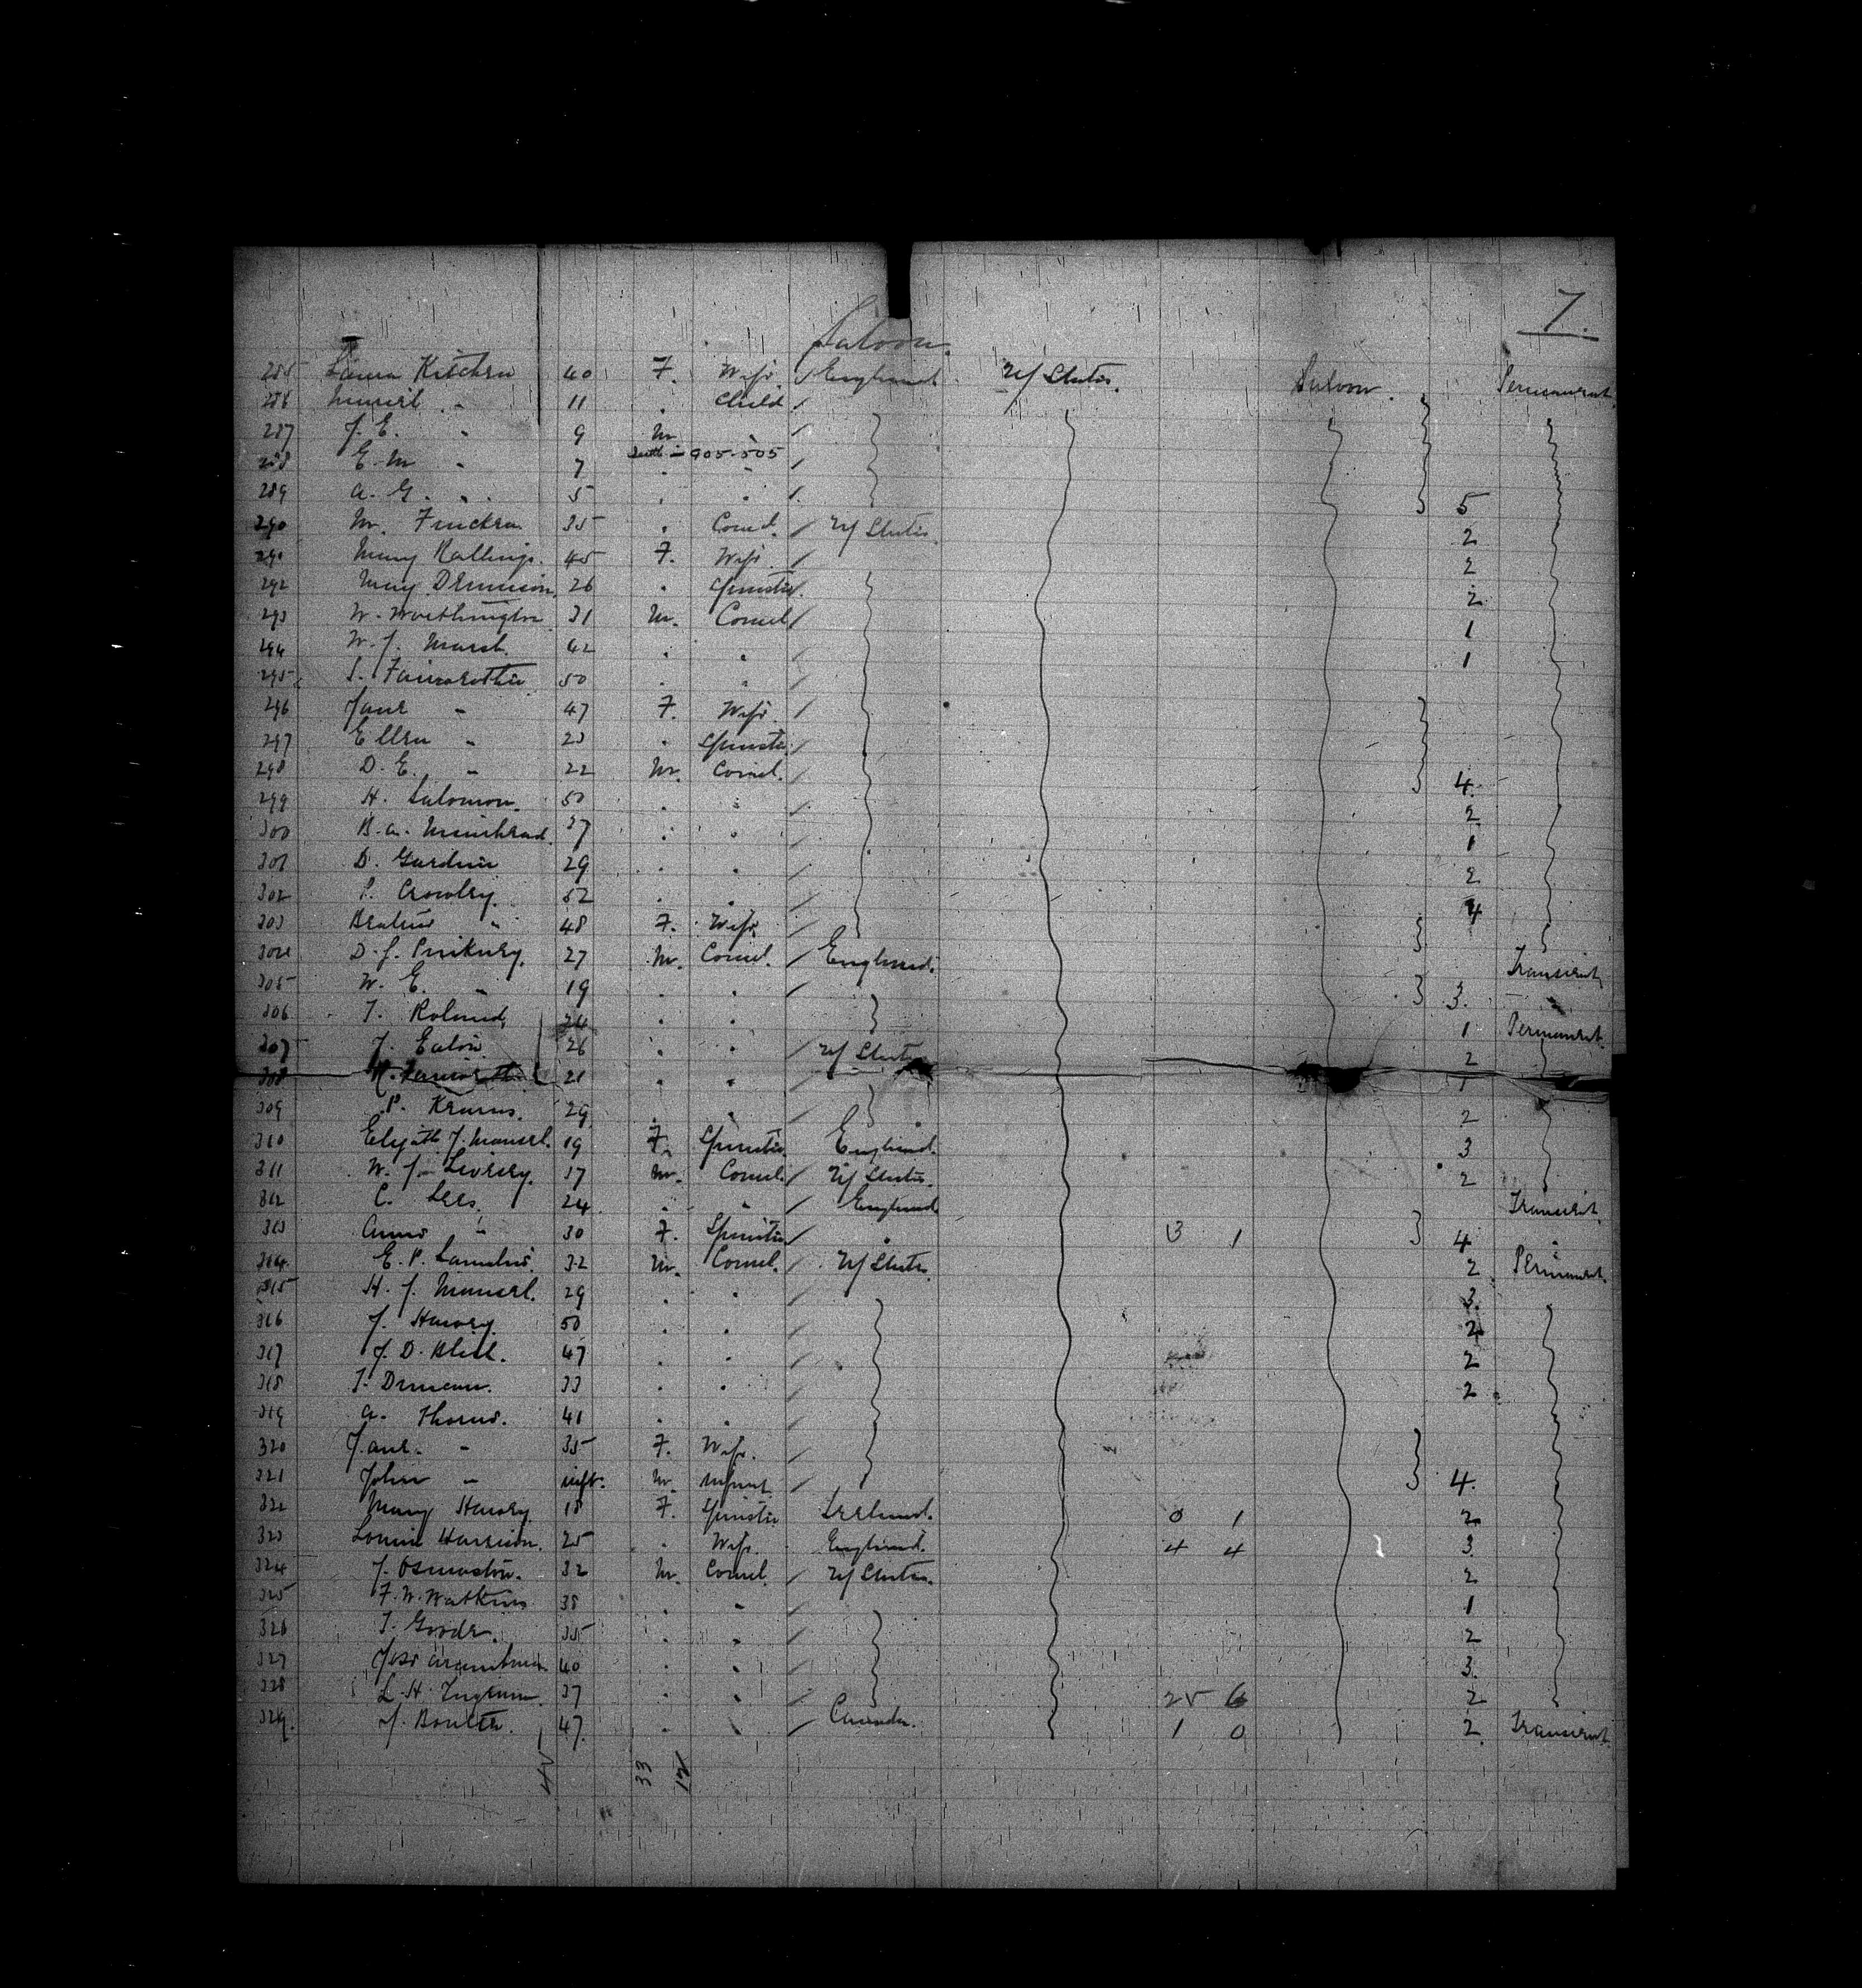 7.
Saloon.
285 Laura Kitchen 40 F. Wife / England. U/States. Saloon. Permanent
286 Muriel " 11 " Child /
287 J. E. " 9 M " /
288 E. M " 7 " " / 905-505
289 A. G. " 5 " " / 5
290 M. 35 " Coml. / U/States. 2
291 Mary Rallings. 45 F. Wife / 2
292 May Dennison. 26 " Spinster. 2
293 W. Worthington 31 M. Coml / 1
294 W. J. Marsh. 42 " " / 1
295 50 " " /
296 Jane " 47 F. Wife /
297 Ellen " 23 " Spinster /
298 D. E. " 22 M. Coml. / 4.
299 H. Salomon. 50 " " / 2
300 B. A. Muirhead. 37 " " / 1
301 D. Gardner 29 " " / 2
302 P. Crowley. 52 " " / 4
303 " 48 F. Wife /
304 D. J. 27 M. Coml. / England. Transient
305 W. E. " 19 " " / 3.
306 T. Roland, 24 " " 1 Permanent.
307 J. Eaton 26 " " / U/States 2
308 21 " " / 1
309 P. 29 " " / 2
310 Elizth J. Mansel. 19 F. Spinster England. 3
311 W. J. Livesey. 17 M. Coml. / U/States. 2
312 C. Lees. 24 " " / England Transient.
313 Annie " 30 F. Spinster / " 3 1 4 "
314 E. P. 32 M. Coml. / U/States. 2 Permanent.
315 H. J. Mansel. 29 " " / 3.
316 J. Harvey. 50 " " / 2
317 J. D. 47 " " / 2
318 T. Duncan. 33 " " / 2
319 A. 41 " " /
320 Jane. " 35 F. Wife. /
321 John " inft. M. Infant / 4.
322 Mary Harvey 18 F. Spinster Ireland. 0 1 2
323 Louise Harrison. 25 " Wife. England. 4 4 3.
324 J. Osmaston. 32 M. Coml. / U/States. 2
325 F. W. Watkins 38 " " / 1
326 T. Goode. 35 " " / 2
327 40 " " / 3.
328 L. H. Ingram. 37 " " / 25 6 2
329. J. Boulter. 47. " " / Canada. 1 0 2 Transient
45 33 12